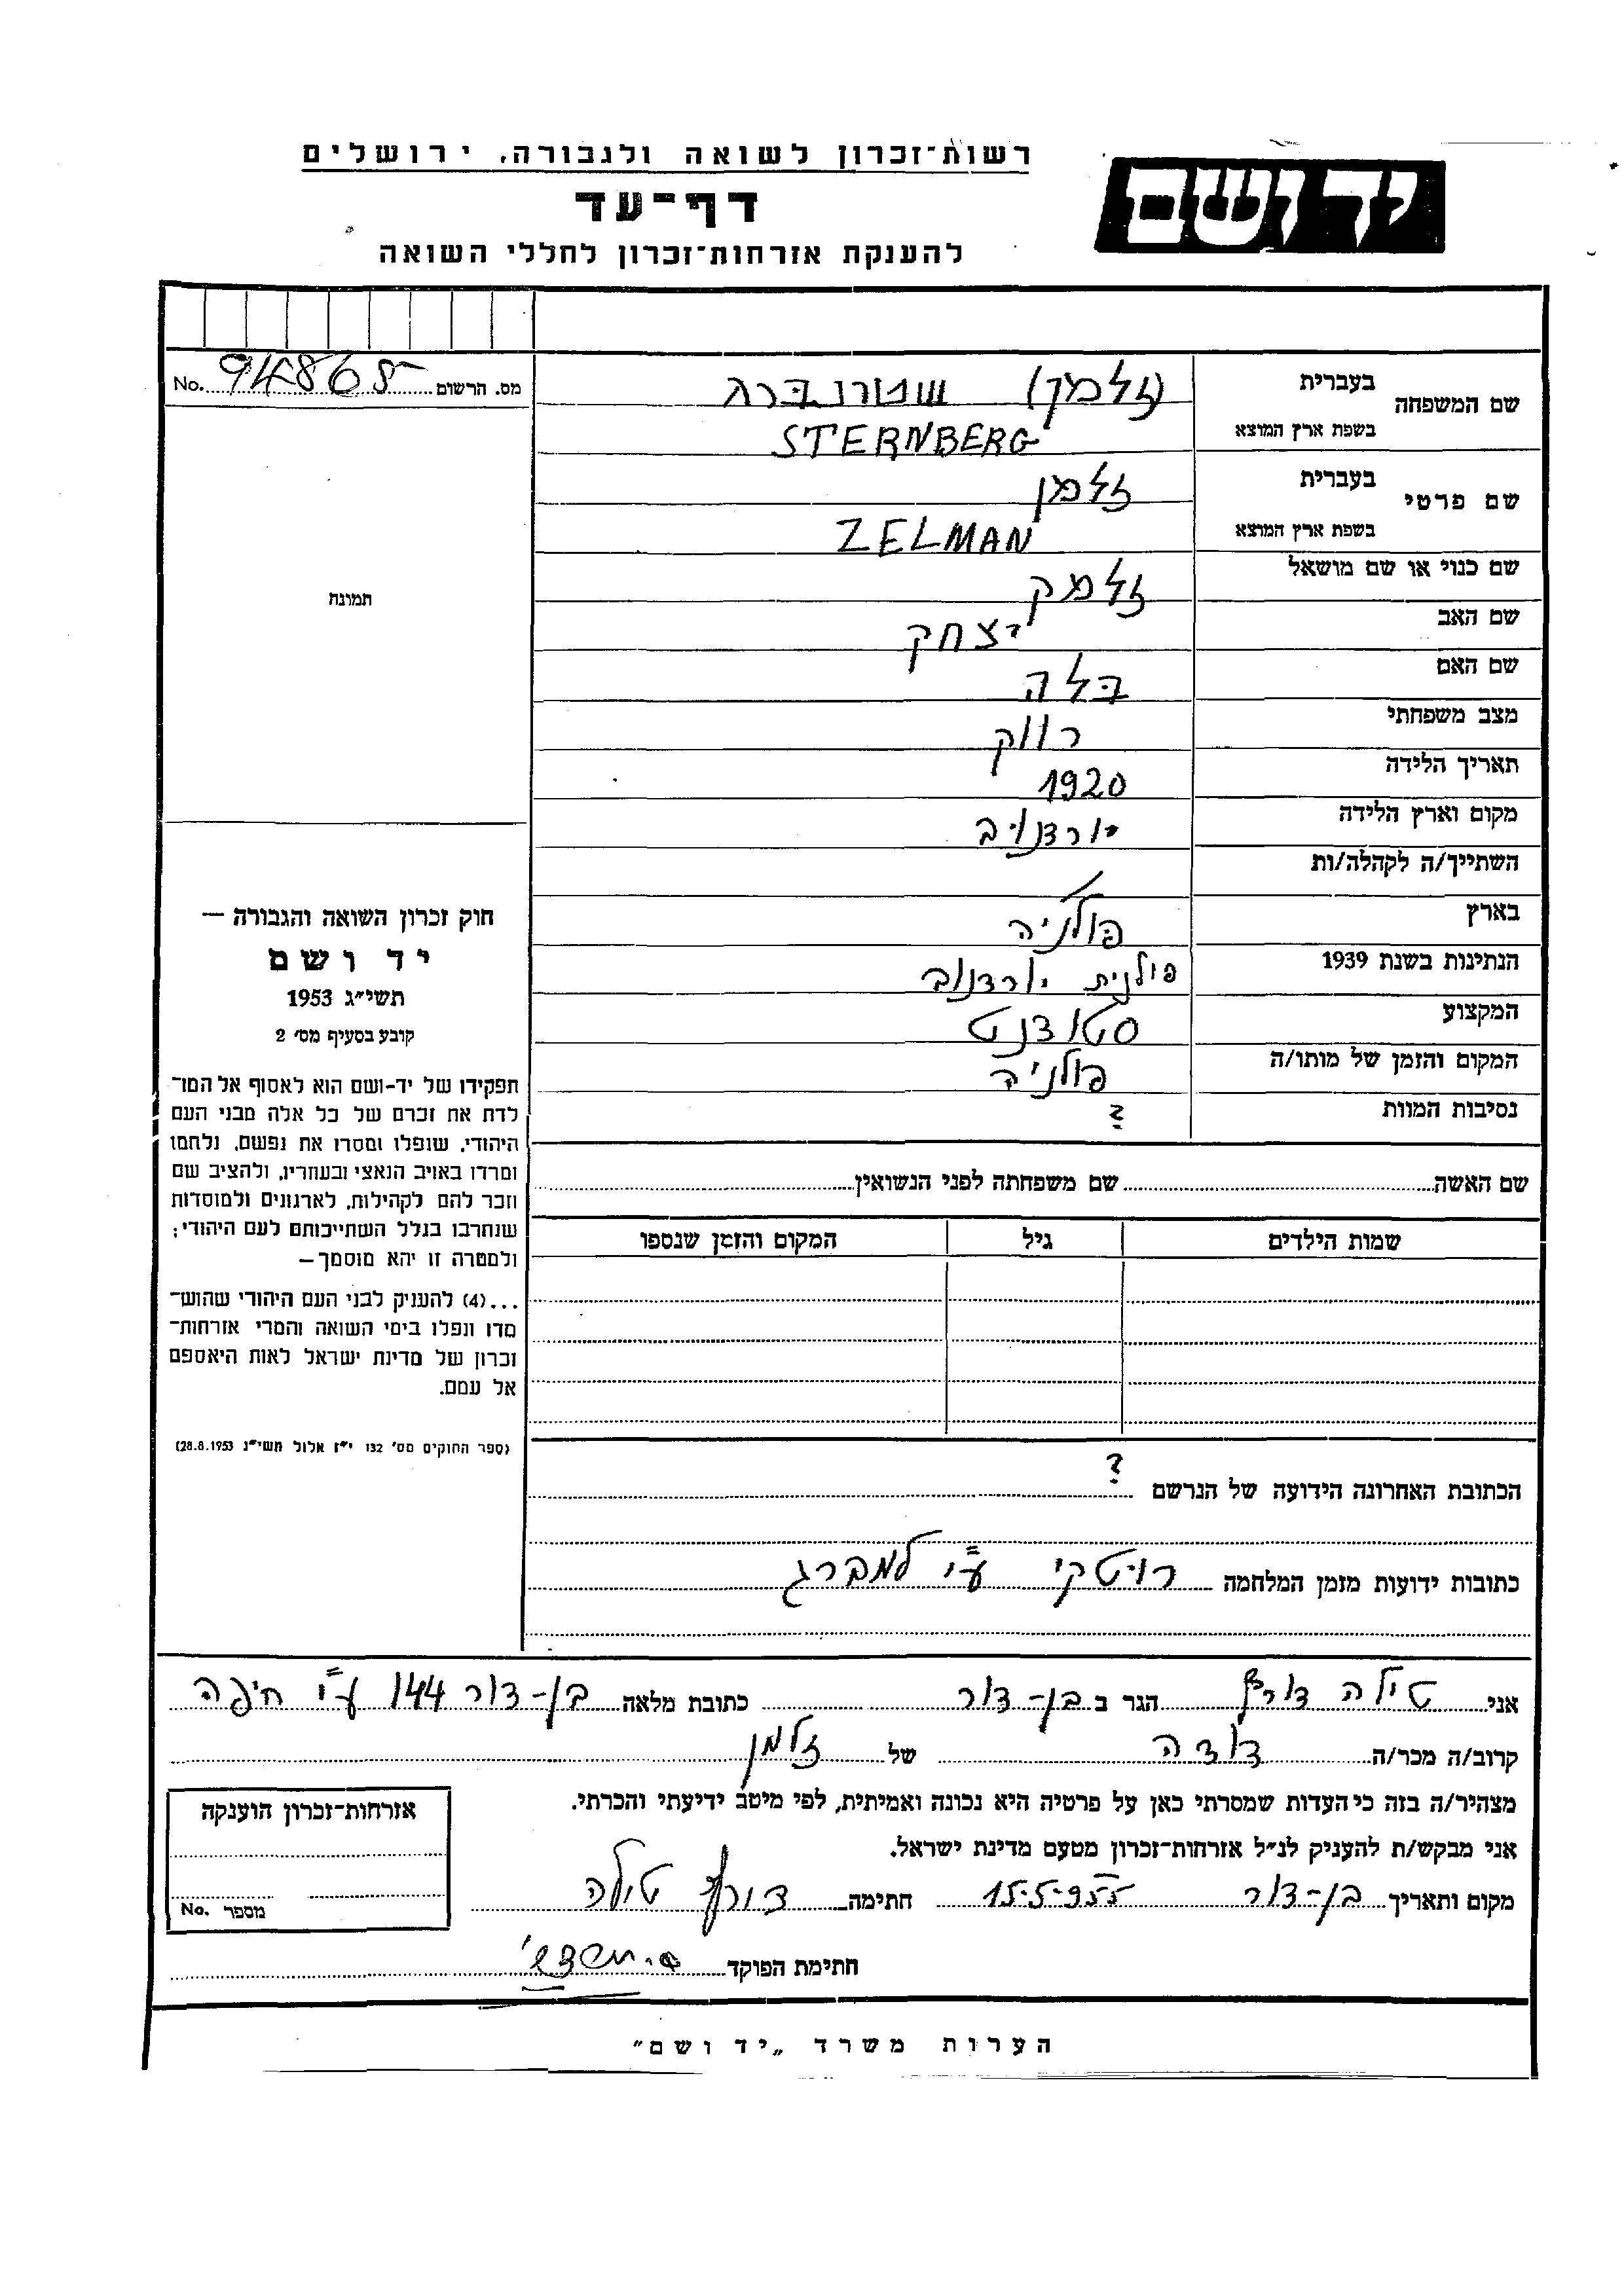 רשות־זכרון לשואה ולגבורה, ירושלים
יד ושם
דף־עד
להענקת אזרחות־זכרון לחללי השואה
מס. הרשום 94865 No.
שם המשפחה בעברית (זלמן) שטרנברג
בשפת ארץ המוצא STERNBERG
שם פרטי בעברית זלמן
בשפת ארץ המוצא ZELMAN
שם כנוי או שם מושאל זלמק
שם האב יצחק
שם האם בלה
מצב משפחתי רווק
תאריך הלידה 1920
מקום וארץ הלידה יורדנוב
השתייך/ה לקהלה/ות
בארץ פולניה
הנתינות בשנת 1939 פולנית יורדנוב
המקצוע סטודנט
המקום והזמן של מותו/ה פולניה
נסיבות המוות ?
תמונה
חוק זכרון השואה והגבורה —
יד ושם
תשי״ג 1953
קובע בסעיף מס׳ 2
תפקידו של יד-ושם הוא לאסוף אל המו־
לדת את זכרם של כל אלה מבני העם
היהודי, שנפלו ומסרו את נפשם, נלחמו
ומרדו באויב הנאצי ובעוזריו, ולהציב שם
וזכר להם לקהילות, לארגונים ולמוסדות
שנחרבו בגלל השתייכותם לעם היהודי;
ולמטרה זו יהא מוסמך—
...(4) להעניק לבני העם היהודי שהוש־
מדו ונפלו בימי השואה והמרי אזרחות־
זכרון של מדינת ישראל לאות היאספם
אל עמם.
(ספר החוקים מס׳ 132 י״ז אלול תשי״ג 28.8.1953)
שם האשה שם משפחתה לפני הנשואין
שמות הילדים גיל המקום והזמן שנספו
הכתובת האחרונה הידועה של הנרשם ?
כתובות ידועות מזמן המלחמה רויטקי ע״י למברג
אני טילה הגר ב בן-דור כתובת מלאה בן-דור 144 ע״י חיפה
קרוב/ה מכר/ה דודה של זלמן
מצהיר/ה בזה כי העדות שמסרתי כאן על פרטיה היא נכונה ואמיתית, לפי מיטב ידיעתי והכרתי.
אני מבקש/ת להעניק לנ״ל אזרחות־זכרון מטעם מדינת ישראל.
מקום ותאריך בן-דור 15-5-955 חתימה טילה
חתימת הפוקד
אזרחות־זכרון הוענקה
מספר No.
הערות משרד „יד ושם״